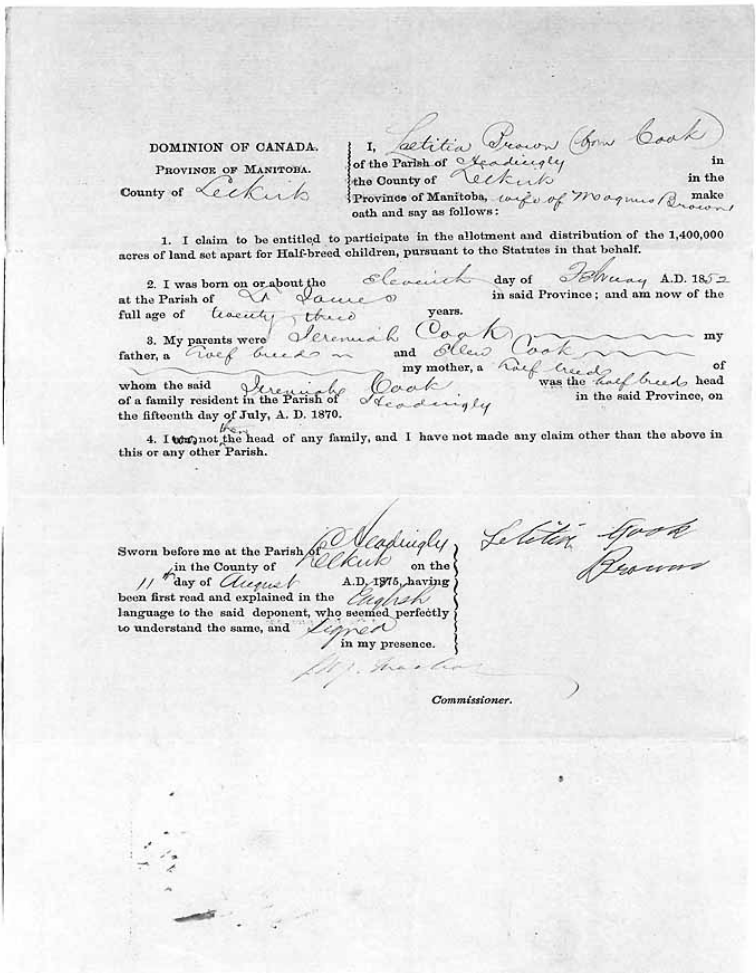 DOMINION OF CANADA.
PROVINCE OF MANITOBA.
County of Selkirk
I, Letitia Brown (born Cook)
of the Parish of Headingly in
the County of Selkirk in the
Province of Manitoba, wife of Magnus Brown make
oath and say as follows:
1. I claim to be entitled to participate in the allotment and distribution of the 1,400,000
acres of land set apart for Half-breed children, pursuant to the Statutes in that behalf.
2. I was born on or about the eleventh day of February A.D. 1852
at the Parish of St James in said Province; and am now of the
full age of twenty three years.
3. My parents were Jeremiah Cook my
father, a half breed and Ellen Cook
my mother, a half breed of
whom the said Jeremiah Cook was the half breeds head
of a family resident in the Parish of Headingly in the said Province, on
the fifteenth day of July, A. D. 1870.
4. I was not then the head of any family, and I have not made any claim other than the above in
this or any other Parish.
Sworn before me at the Parish of Headingly
in the County of Selkirk on the
11th day of August A.D. 1875, having
been first read and explained in the English
language to the said deponent, who seemed perfectly
to understand the same, and signed
in my presence.
Letitia Cook
Brown
Commissioner.